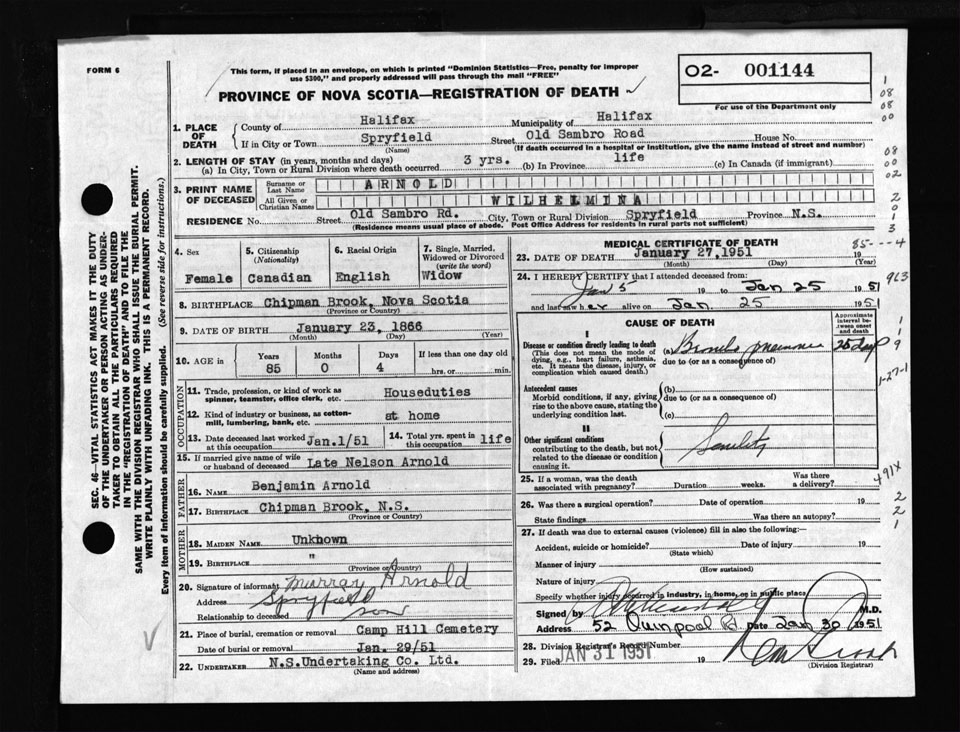 FORM 6
This form, if placed in an envelope, on which is printed "Dominion Statistics—Free, penalty for improper
use $300," and properly addressed will pass through the mail "FREE"
PROVINCE OF NOVA SCOTIA—REGISTRATION OF DEATH
02- 001144
For use of the Department only
1. PLACE OF DEATH
County of Halifax Municipality of Halifax
If in City or Town Spryfield Street Old Sambro Road House No.
(Name) (If death occurred in a hospital or institution, give the name instead of street and number)
2. LENGTH OF STAY (in years, months and days)
(a) In City, Town or Rural Division where death occurred 3 yrs. (b) In Province life (c) In Canada (if immigrant)
3. PRINT NAME OF DECEASED
Surname or Last Name ARNOLD
All Given or Christian Names WILHELMINA
RESIDENCE No. Street Old Sambro Rd. City, Town or Rural Division Spryfield Province N.S.
(Residence means usual place of abode. Post Office Address for residents in rural parts not sufficient)
4. Sex
Female
5. Citizenship
(Nationality)
Canadian
6. Racial Origin
English
7. Single, Married,
Widowed or Divorced
(write the word)
Widow
8. BIRTHPLACE Chipman Brook, Nova Scotia
(Province or Country)
9. DATE OF BIRTH January 23, 1866
(Month) (Day) (Year)
10. AGE IN
Years Months Days If less than one day old
85 0 4 hrs. or min.
OCCUPATION
11. Trade, profession, or kind of work as
spinner, teamster, office clerk, etc. Houseduties
12. Kind of industry or business, as cotton-
mill, lumbering, bank, etc. at home
13. Date deceased last worked
at this occupation Jan.1/51
14. Total yrs. spent in
this occupation life
15. If married give name of wife
or husband of deceased Late Nelson Arnold
FATHER
16. NAME Benjamin Arnold
17. BIRTHPLACE Chipman Brook, N.S.
(Province or Country)
MOTHER
18. MAIDEN NAME Unkhown
19. BIRTHPLACE "
(Province or Country)
20. Signature of informant Murray Arnold
Address Spryfield
Relationship to deceased son
21. Place of burial, cremation or removal Camp Hill Cemetery
Date of burial or removal Jan. 29/51
22. UNDERTAKER N.S.Undertaking Co. Ltd.
(Name and address)
MEDICAL CERTIFICATE OF DEATH
23. DATE OF DEATH January 27,1951 19
(Month) (Day) (Year)
24. I HEREBY CERTIFY that I attended deceased from:
Jan 5 19 to Jan 25 1951
and last saw her alive on Jan. 25 1951
CAUSE OF DEATH
Approximate
interval be-
tween onset
and death
I
Disease or condition directly leading to death
(This does not mean the mode of
dying, e.g., heart failure, asthenia,
etc. It means the disease, injury, or
complication which caused death.)
(a) Broncho pneumonia 25 days
due to (or as a consequence of)
Antecedent causes
Morbid conditions, if any, giving
rise to the above cause, stating the
underlying condition last.
(b)
due to (or as a consequence of)
(c)
II
Other significant conditions
contributing to the death, but not
related to the disease or condition
causing it.
Senility
25. If a woman, was the death
associated with pregnancy? Duration weeks. Was there
a delivery?
26. Was there a surgical operation? Date of operation 19
State findings Was there an autopsy?
27. If death was due to external causes (violence) fill in also the following:—
Accident, suicide or homicide? Date of injury 19
(State which)
Manner of injury
(How sustained)
Nature of injury
Specify whether injury occurred in industry, in home, or in public place
Signed by M.D.
Address 52 Quinpool Rd Date Jan 30 1951
28. Division Registrar's Record Number
29. Filed JAN 31 1951 19
(Division Registrar)
SEC. 46—VITAL STATISTICS ACT MAKES IT THE DUTY
OF THE UNDERTAKER OR PERSON ACTING AS UNDER-
TAKER TO OBTAIN ALL THE PARTICULARS REQUIRED
IN THE "REGISTRATION OF DEATH" AND TO FILE THE
SAME WITH THE DIVISION REGISTRAR WHO SHALL ISSUE THE BURIAL PERMIT.
WRITE PLAINLY WITH UNFADING INK. THIS IS A PERMANENT RECORD.
Every item of information should be carefully supplied. (See reverse side for instructions.)
1
08
08
00
08
00
02
2
0
1
3
85---4
963
1
1
9
1-27-1
491X
2
2
1